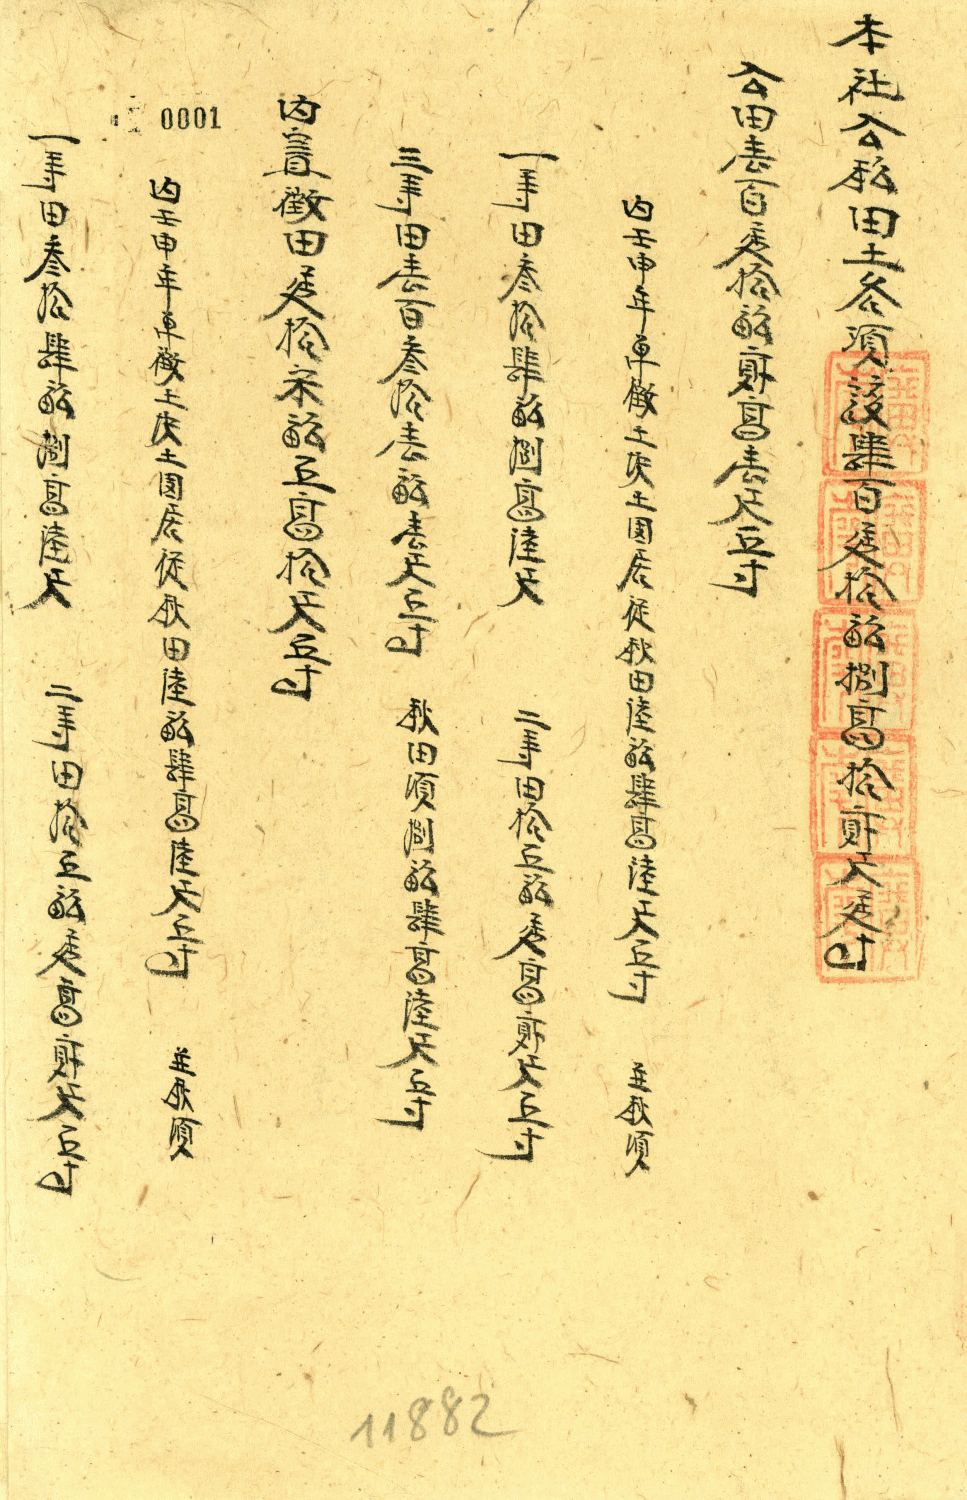 本社公私田土各項該肆百玖拾畝捌高拾貳尺玖寸
公田壹百玖拾畝貳高壹尺五寸
內壬申年單徵土決土園居從秋田陸畝肆高陸尺五寸 並秋項
一等田叁拾肆畝捌高陸尺 二等田拾五畝玖高貳尺五寸
三等田壹百叁拾壹畝壹尺五寸 秋田項捌畝肆高陸尺五寸
內實徵田玖拾柒畝五高拾尺五寸
0001
內壬申年單徵土決土園居從秋田陸畝肆高陸尺五寸 並秋項
一等田叁拾肆畝捌高陸尺 二等田拾五畝玖高貳尺五寸
11882